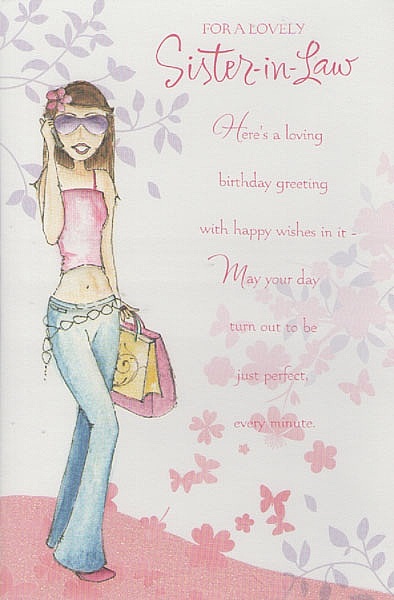 FOR A LOVELY
Sister-in-Law
Here's a loving
birthday greeting
with happy wishes in it -
May your day
turn out to be
just perfect,
every minute.